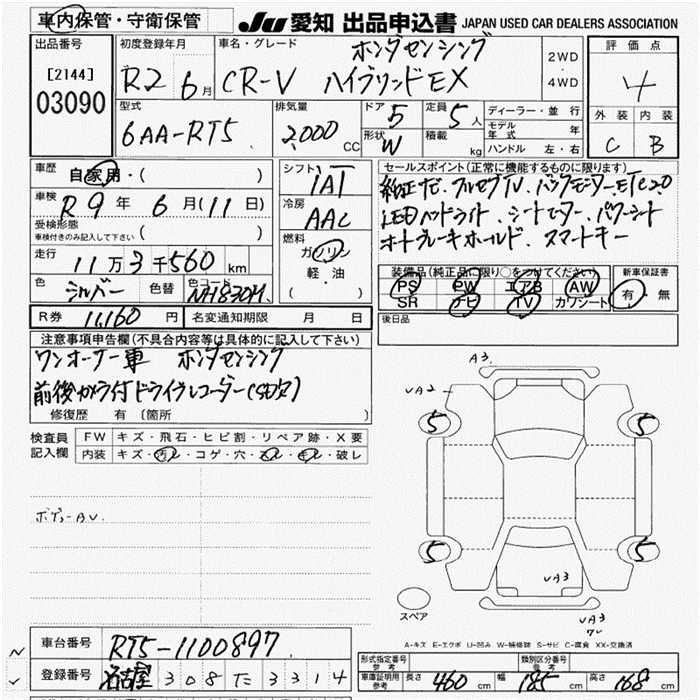 車内保管・守衛保管
JU 愛知 出品申込書 JAPAN USED CAR DEALERS ASSOCIATION
出品番号
[2144]
03090
初度登録年月
R2 6月
車名・グレード
ホンダセンシング
CR-V ハイブリッドEX
2WD
・
4WD
評価点
4
外装 内装
C B
型式
6AA-RT5
排気量
2,000 CC
ドア 5
定員 5 人
形状 W
積載 kg
ディーラー・並行
モデル年式 年
ハンドル 左・右
車歴 自家用・( )
車検 R9年 6月(11日)
受検形態
車検付きのみ記入して下さい ( )
走行 11万3千560 km
色 シルバー 色替 色コード NH830M
R券 11,160 円 名変通知期限 月 日
シフト
IAT
冷房
AAC
燃料
ガソリン
軽・油
( )
セールスポイント(正常に機能するものに限ります)
純正ナビ、フルセグTV、バックモニター、ETC2.0
LEDヘッドライト、シートヒーター、パワーシート
オートブレーキホールド、スマートキー
装備品(純正品に限り○をつけてください) 新車保証書
PS PW エアB AW
SR ナビ TV カワシート
有・無
後日品
注意事項申告欄(不具合内容等は具体的に記入して下さい)
ワンオーナー車 ホンダセンシング
前後カメラ付ドライブレコーダー(SD欠)
修復歴 有 〔箇所 〕
検査員記入欄
FW キズ・飛石・ヒビ割・リペア跡・X要
内装 キズ・汚レ・コゲ・穴・スレ・キレ・破レ
ボデーAU.
A3
UA2
5
5
5
5
UA3
UA3
スペア
A-キズ E-エクボ U-凹み W-補修跡 S-サビ C-腐食 XX-交換済
車台番号 RT5-1100897
登録番号 名古屋 308 た 3314
形式指定番号 参考
類別区分番号 参考
車庫証明用参考 長さ 460 cm 幅 185 cm 高さ 168 cm